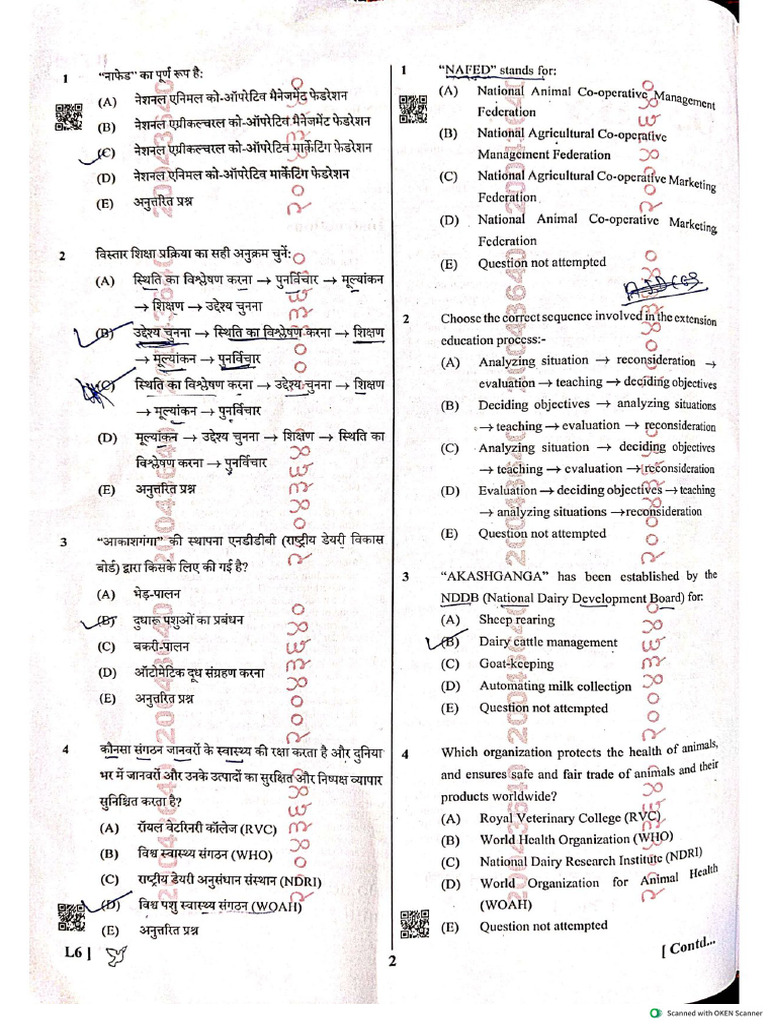 1 "नाफेड" का पूर्ण रूप है:
(A) नेशनल एनिमल को-ऑपरेटिव मैनेजमेंट फेडरेशन
(B) नेशनल एग्रीकल्चरल को-ऑपरेटिव मैनेजमेंट फेडरेशन
(C) नेशनल एग्रीकल्चरल को-ऑपरेटिव मार्केटिंग फेडरेशन
(D) नेशनल एनिमल को-ऑपरेटिव मार्केटिंग फेडरेशन
(E) अनुत्तरित प्रश्न
2 विस्तार शिक्षा प्रक्रिया का सही अनुक्रम चुनें:
(A) स्थिति का विश्लेषण करना → पुनर्विचार → मूल्यांकन
→ शिक्षण → उद्देश्य चुनना
(B) उद्देश्य चुनना → स्थिति का विश्लेषण करना → शिक्षण
→ मूल्यांकन → पुनर्विचार
(C) स्थिति का विश्लेषण करना → उद्देश्य चुनना → शिक्षण
→ मूल्यांकन → पुनर्विचार
(D) मूल्यांकन → उद्देश्य चुनना → शिक्षण → स्थिति का
विश्लेषण करना → पुनर्विचार
(E) अनुत्तरित प्रश्न
3 "आकाशगंगा" की स्थापना एनडीडीबी (राष्ट्रीय डेयरी विकास
बोर्ड) द्वारा किसके लिए की गई है?
(A) भेड़-पालन
(B) दुधारू पशुओं का प्रबंधन
(C) बकरी-पालन
(D) ऑटोमेटिक दूध संग्रहण करना
(E) अनुत्तरित प्रश्न
4 कौनसा संगठन जानवरों के स्वास्थ्य की रक्षा करता है और दुनिया
भर में जानवरों और उनके उत्पादों का सुरक्षित और निष्पक्ष व्यापार
सुनिश्चित करता है?
(A) रॉयल वेटरिनरी कॉलेज (RVC)
(B) विश्व स्वास्थ्य संगठन (WHO)
(C) राष्ट्रीय डेयरी अनुसंधान संस्थान (NDRI)
(D) विश्व पशु स्वास्थ्य संगठन (WOAH)
(E) अनुत्तरित प्रश्न
L6 ]
1 "NAFED" stands for:
(A) National Animal Co-operative Management
Federation
(B) National Agricultural Co-operative
Management Federation
(C) National Agricultural Co-operative Marketing
Federation
(D) National Animal Co-operative Marketing
Federation
(E) Question not attempted
2 Choose the correct sequence involved in the extension
education process:-
(A) Analyzing situation → reconsideration →
evaluation → teaching → deciding objectives
(B) Deciding objectives → analyzing situations
→ teaching → evaluation → reconsideration
(C) Analyzing situation → deciding objectives
→ teaching → evaluation → reconsideration
(D) Evaluation → deciding objectives → teaching
→ analyzing situations →reconsideration
(E) Question not attempted
3 "AKASHGANGA" has been established by the
NDDB (National Dairy Development Board) for:
(A) Sheep rearing
(B) Dairy cattle management
(C) Goat-keeping
(D) Automating milk collection
(E) Question not attempted
4 Which organization protects the health of animals,
and ensures safe and fair trade of animals and their
products worldwide?
(A) Royal Veterinary College (RVC)
(B) World Health Organization (WHO)
(C) National Dairy Research Institute (NDRI)
(D) World Organization for Animal Health
(WOAH)
(E) Question not attempted
[ Contd...
2
Scanned with OKEN Scanner